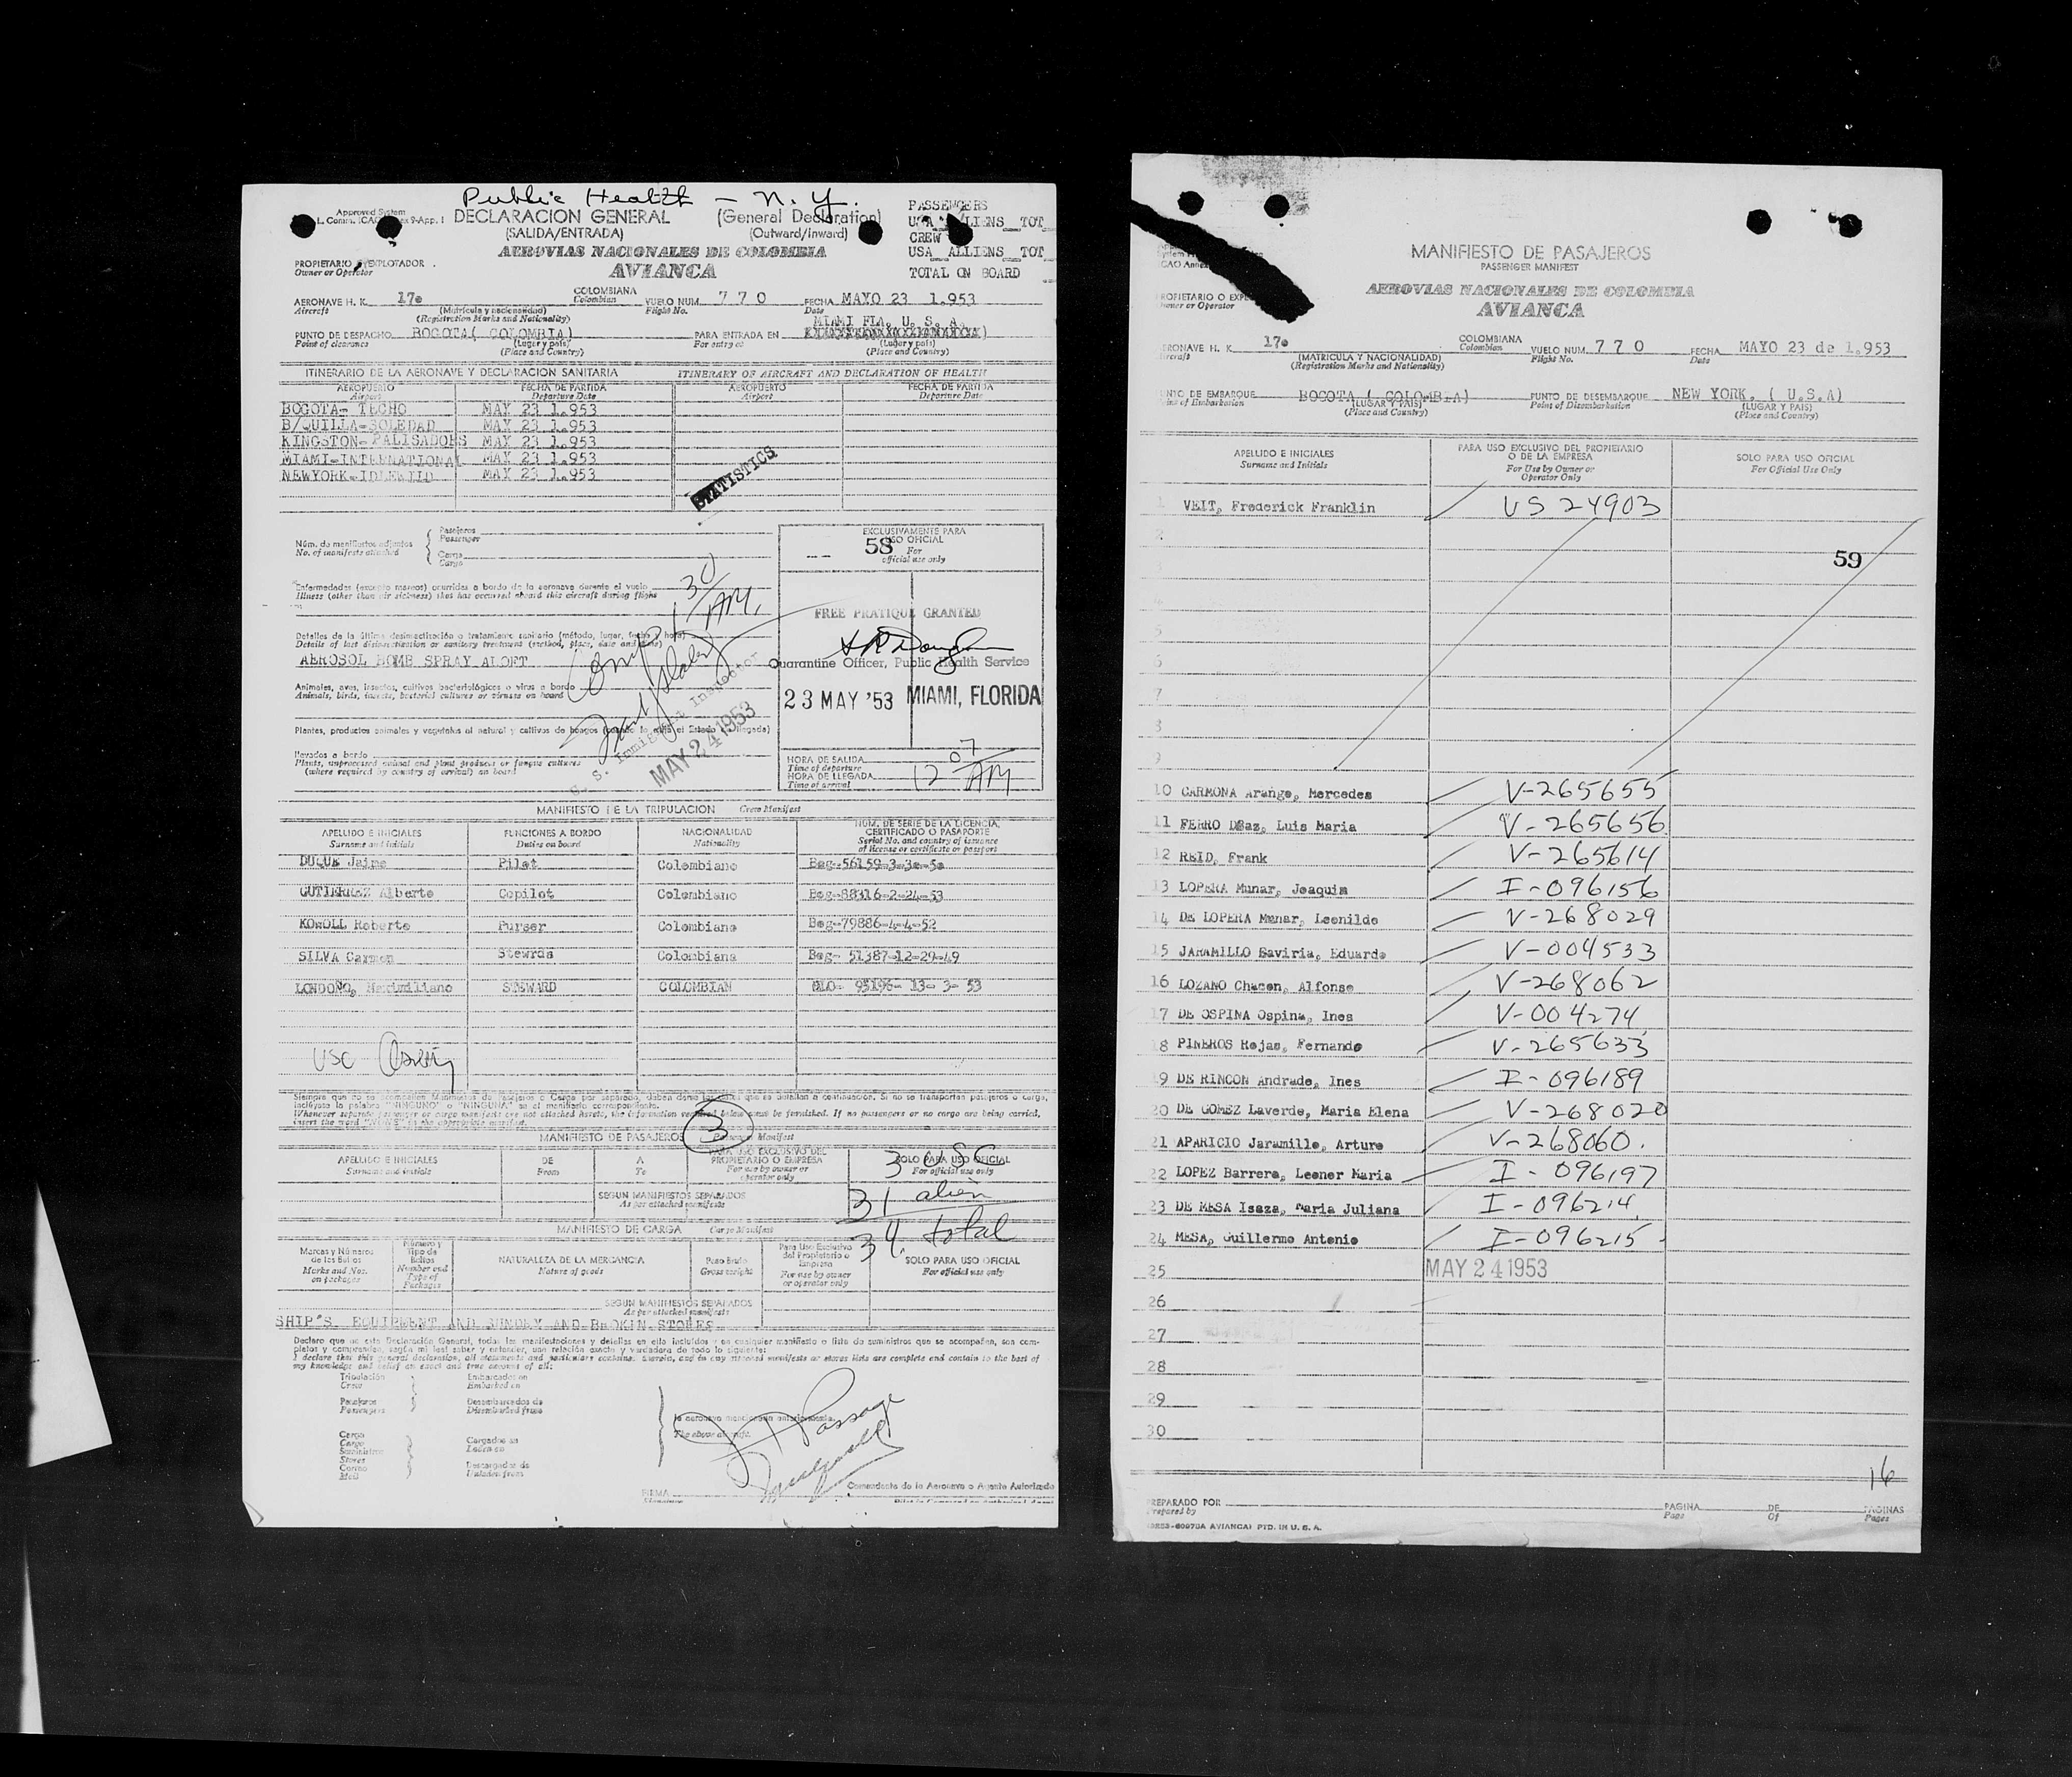 Public Health - N.Y.
Approved System
DECLARACION GENERAL (General Declaration)
(SALIDA/ENTRADA) (Outward/Inward)
AEROVIAS NACIONALES DE COLOMBIA
AVIANCA
PASSENGERS
CREW
USA ALLIENS TOT
TOTAL ON BOARD
PROPIETARIO EXPLOTADOR
Owner or Operator
AERONAVE H. K. 170 COLOMBIANA VUELO NUM. 770 FECHA MAYO 23 1.953
Aircraft (Matricula y nacionalidad) Colombian Flight No. Date
(Registration Marks and Nationality)
MIAMI FLA, U. S. A.
PUNTO DE DESPACHO BOGOTA( COLOMBIA) PARA ENTRADA EN
Point of clearance (Lugar y país) For entry at (Lugar y país)
(Place and Country) (Place and Country)
ITINERARIO DE LA AERONAVE Y DECLARACION SANITARIA ITINERARY OF AIRCRAFT AND DECLARATION OF HEALTH
AEROPUERTO FECHA DE PARTIDA AEROPUERTO FECHA DE PARTIDA
Airport Departure Date Airport Departure Date
BOGOTA- TECHO MAY 23 1.953
B/QUILLA-SOLEDAD MAY 23 1.953
KINGSTON-PALISADORS MAY 23 1.953
MIAMI-INTERNATIONAL MAY 23 1.953
NEWYORK-IDLEWILD MAY 23 1.953
STATISTICS
Núm. de manifiestos adjuntos
No. of manifests attached
Pasajeros
Passenger
Carga
Cargo
EXCLUSIVAMENTE PARA
USO OFICIAL
58 For
official use only
Enfermedades (excepto mareos) ocurridas a bordo de la aeronave durante el vuelo
Illness (other than air sickness) that has occurred aboard this aircraft during flight
130 AM.
FREE PRATIQUE GRANTED
Detalles de la última desinsectización o tratamiento sanitario (método, lugar, fecha y hora)
Details of last disinsectization or sanitary treatment (method, place, date and time)
AEROSOL BOMB SPRAY ALOFT
Quarantine Officer, Public Health Service
Animales, aves, insectos, cultivos bacteriológicos o virus a bordo
Animals, birds, insects, bacterial cultures or viruses on board
23 MAY '53 MIAMI, FLORIDA
Immigrant Inspector
MAY 24 1953
Plants, unprocessed animal and plant products or fungus cultures
(where required by country of arrival) on board
HORA DE SALIDA
Time of departure
HORA DE LLEGADA 12 07 AM
Time of arrival
MANIFIESTO DE LA TRIPULACION Crew Manifest
APELLIDO E INICIALES FUNCIONES A BORDO NACIONALIDAD NUM. DE SERIE DE LA LICENCIA, CERTIFICADO O PASAPORTE
Surname and initials Duties on board Nationality Serial No. and country of issuance of license or certificate or passport
DUQUE Jaime Pilot Colombiano Bog-56159-3-30-50
GUTIERREZ Alberto Copilot Colombiano Bog-88316-2-24-53
KOROLL Roberto Purser Colombiano Bog-79886-4-4-52
SILVA Carmen Stewrds Colombiana Bog- 51387-12-29-49
LONDOÑO, Maximiliano STEWARD COLOMBIAN 95196- 13- 3- 53
USC
Whenever separate passenger or cargo manifests are not attached hereto, the information required below must be furnished. If no passengers or no cargo are being carried,
insert the word "NONE" in the appropriate manifest.
MANIFIESTO DE PASAJEROS 3 Passenger Manifest
APELLIDO E INICIALES DE A PARA USO EXCLUSIVO DEL PROPIETARIO O EMPRESA SOLO PARA USO OFICIAL
Surname and initials From To For use by owner or operator only For official use only
3 USC
SEGUN MANIFIESTOS SEPARADOS
As per attached manifests
31 alien
MANIFIESTO DE CARGA Cargo Manifest
34 total
Marcas y Números de los Bultos Número y Tipo de Bultos NATURALEZA DE LA MERCANCIA Peso Bruto Para Uso Exclusivo del Propietario o Empresa SOLO PARA USO OFICIAL
Marks and Nos. on packages Number and Type of Packages Nature of goods Gross weight For use by owner or operator only For official use only
SEGUN MANIFIESTOS SEPARADOS
As per attached manifests
SHIP'S EQUIPMENT AND SUNDRY AND BROKEN STORES
Tripulación Embarcados en
Crew Embarked on
Pasajeros Desembarcados de
Passengers Disembarked from
Carga Cargados en
Cargo Laden on
Suministros
Stores
Correo Descargados de
Mail Unladen from
la aeronave mencionada anteriormente.
The above aircraft.
FIRMA Comandante de la Aeronave o Agente Autorizado
Signature
MANIFIESTO DE PASAJEROS
PASSENGER MANIFEST
AEROVIAS NACIONALES DE COLOMBIA
AVIANCA
PROPIETARIO O
Owner or Operator
AERONAVE H. K. 170 COLOMBIANA VUELO NUM. 770 FECHA MAYO 23 de 1.953
Aircraft (MATRICULA Y NACIONALIDAD) Colombian Flight No. Date
(Registration Marks and Nationality)
PUNTO DE EMBARQUE BOGOTA ( COLOMBIA) PUNTO DE DESEMBARQUE NEW YORK. ( U.S.A)
Point of Embarkation (LUGAR Y PAIS) Point of Disembarkation (LUGAR Y PAIS)
(Place and Country) (Place and Country)
APELLIDO E INICIALES PARA USO EXCLUSIVO DEL PROPIETARIO O DE LA EMPRESA SOLO PARA USO OFICIAL
Surname and Initials For Use by Owner or Operator Only For Official Use Only
1 VEIT, Frederick Franklin US 24903
2
59
4
5
6
7
8
9
10 CARMONA Arango, Mercedes V-265655
11 FERRO Diaz, Luis Maria V-265656
12 REID, Frank V-265614
13 LOPERA Munar, Joaquin I-096156
14 DE LOPERA Munar, Leonilde V-268029
15 JARAMILLO Gaviria, Eduardo V-004533
16 LOZANO Chacon, Alfonso V-268062
17 DE OSPINA Ospina, Ines V-004274
18 PINEROS Rojas, Fernando V-265633
19 DE RINCON Andrade, Ines I-096189
20 DE GOMEZ Laverde, Maria Elena V-268020
21 APARICIO Jaramillo, Arturo V-268060.
22 LOPEZ Barrera, Leonor Maria I-096197
23 DE MESA Isaza, Maria Juliana I-096214
24 MESA, Guillermo Antonio I-096215
25 MAY 24 1953
26
27
28
29
30
16
PREPARADO POR PAGINA DE PAGINAS
Prepared by Page Of Pages
AVIANCA) PTD. IN U. S. A.